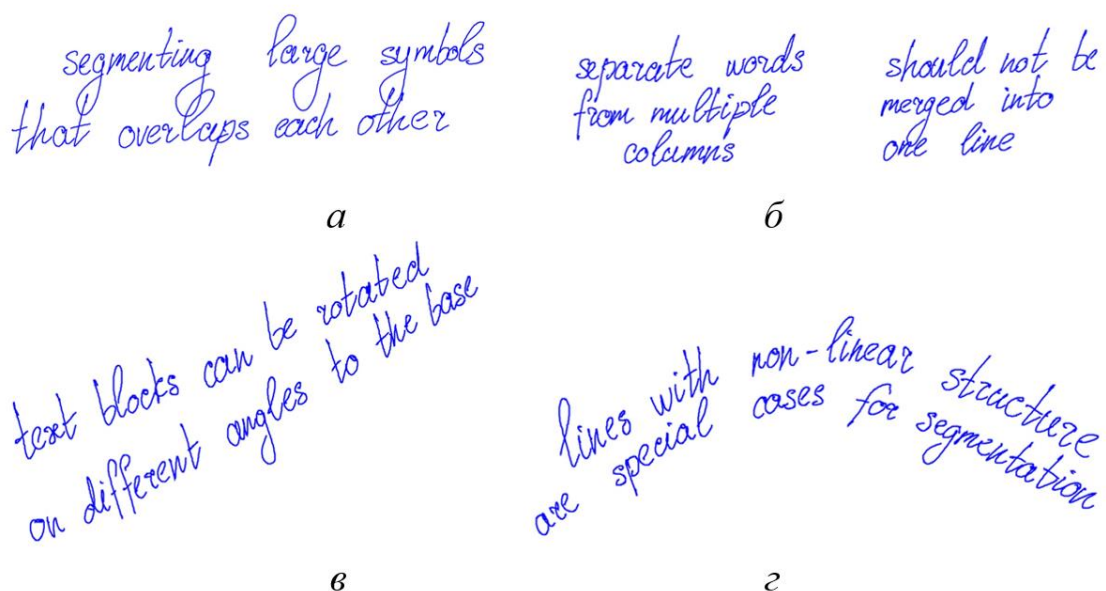 segmenting large symbols
that overlaps each other
а
separate words
from multiple
columns
should not be
merged into
one line
б
text blocks can be rotated
on different angles to the base
в
lines with non-linear structure
are special cases for segmentation
г